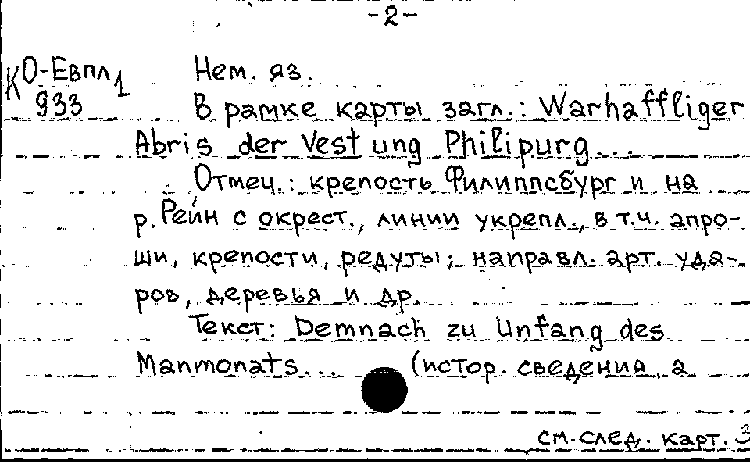 -2-
КО-Евпл 1
933
Нем. яз.
В рамке карты загл.: Warhaffliger
Abris der Vestung Philipurg...
Отмеч.: крепость Филиппсбург и на
р. Рейн с окрест., линии укрепл., в т.ч. апро-
ши, крепости, редуты; направл. арт. уда-
ров, деревья и др.
Текст: Demnach zu Unfang des
Manmonats... (истор. сведения, а
см. след. карт. 3